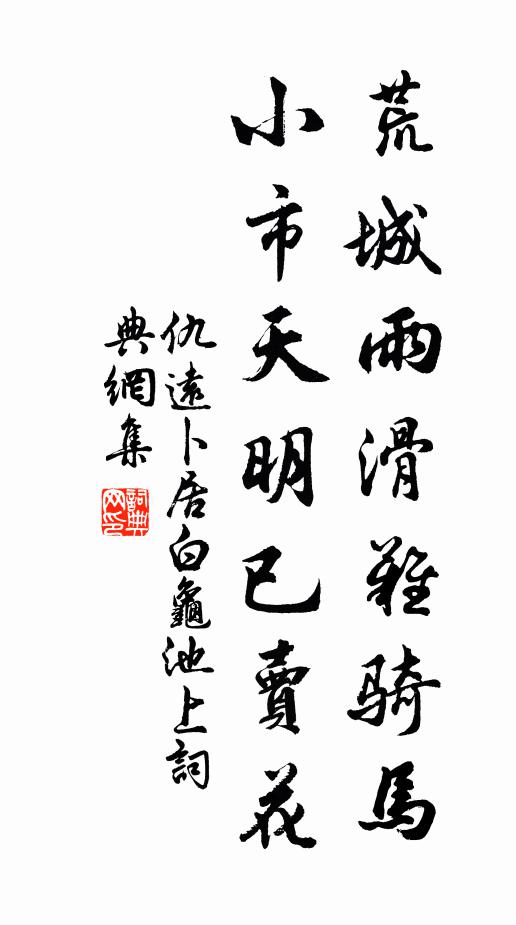 荒城雨滑難騎馬
小市天明已賣花
仇遠卜居白龜池上詞
典網集
詞典網印